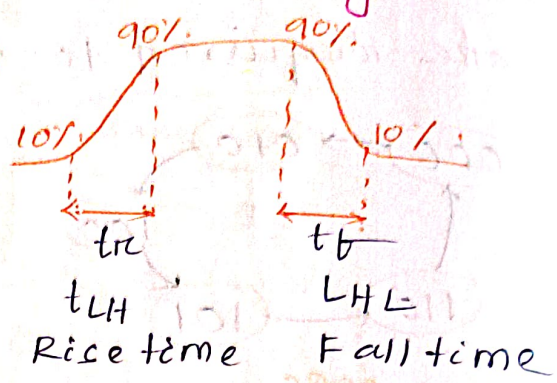 90%. 90%.
10%. 10%.
tr tf
tLH LHL
Rise time Fall time